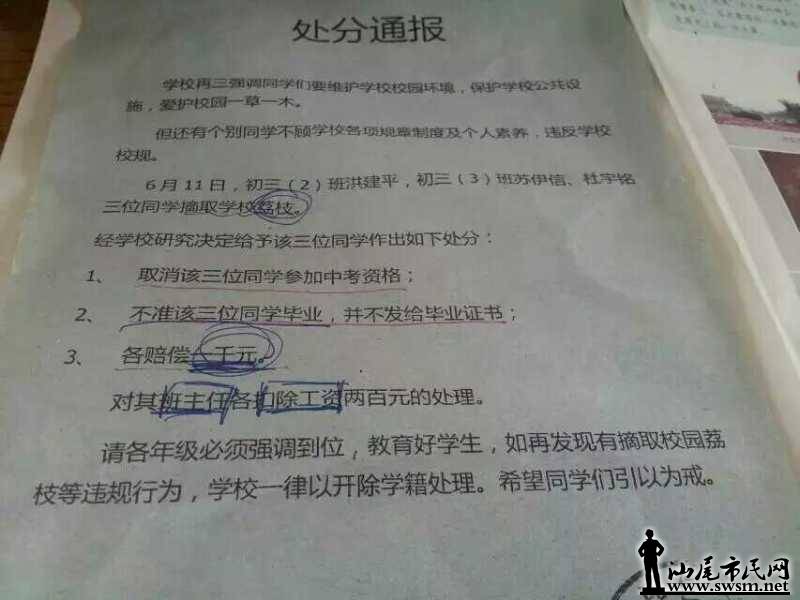 处分通报
学校再三强调同学们要维护学校校园环境，保护学校公共设
施，爱护校园一草一木。
但还有个别同学不顾学校各项规章制度及个人素养，违反学校
校规。
6月11日，初三（2）班洪建平，初三（3）班苏伊信、杜宇铭
三位同学摘取学校荔枝。
经学校研究决定给予该三位同学作出如下处分：
1、 取消该三位同学参加中考资格；
2、 不准该三位同学毕业，并不发给毕业证书；
3、 各赔偿一千元。
对其班主任各扣除工资两百元的处理。
请各年级必须强调到位，教育好学生，如再发现有摘取校园荔
枝等违规行为，学校一律以开除学籍处理。希望同学们引以为戒。
汕尾市民网
www.swsm.net